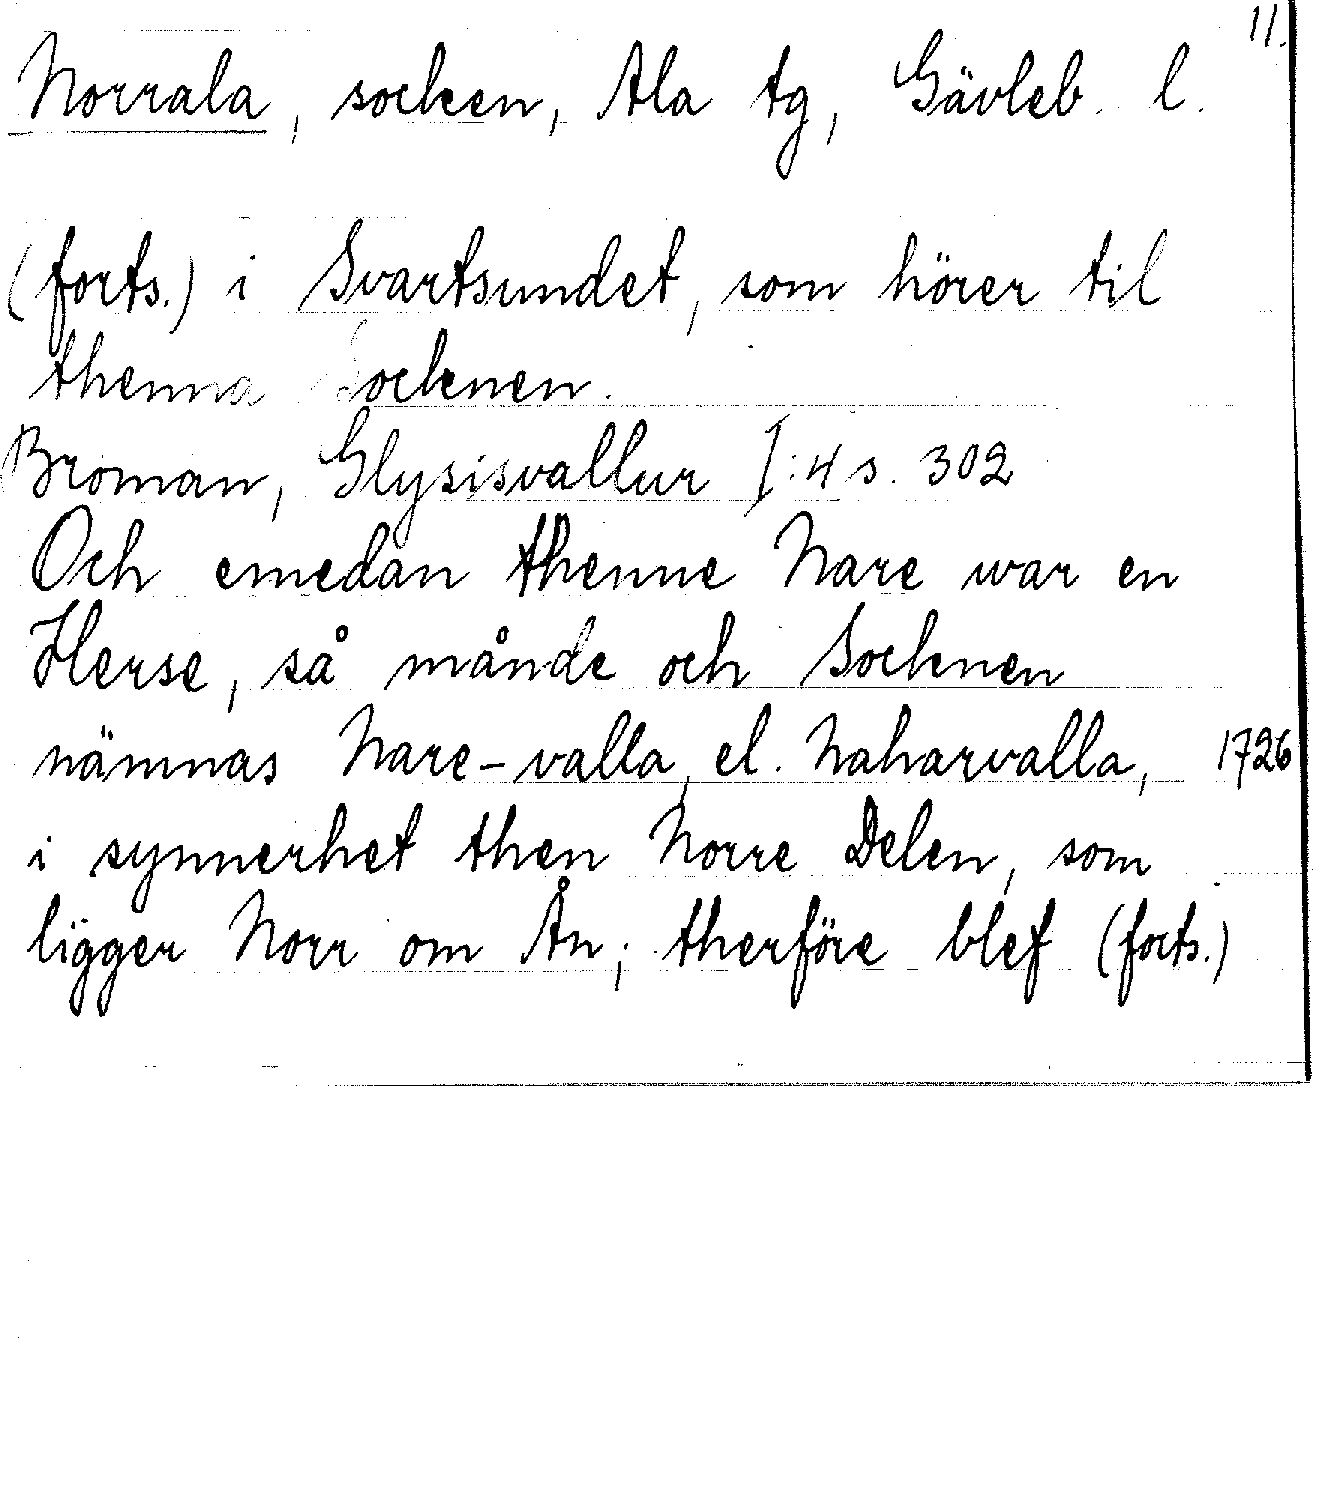 11.
Norrala, socken, Ala tg, Gävleb. l.
(forts.) i Svartsundet, som hörer til
thenna Socknen.
Broman, Glysisvallur I:4 s. 302
Och emedan thenne Nare war en
Herse, så månde och Socknen
nämnas Nare-valla, el. Naharvalla, 1726
i synnerhet then Norre Delen, som
ligger Norr om Ån; therföre blef (forts.)